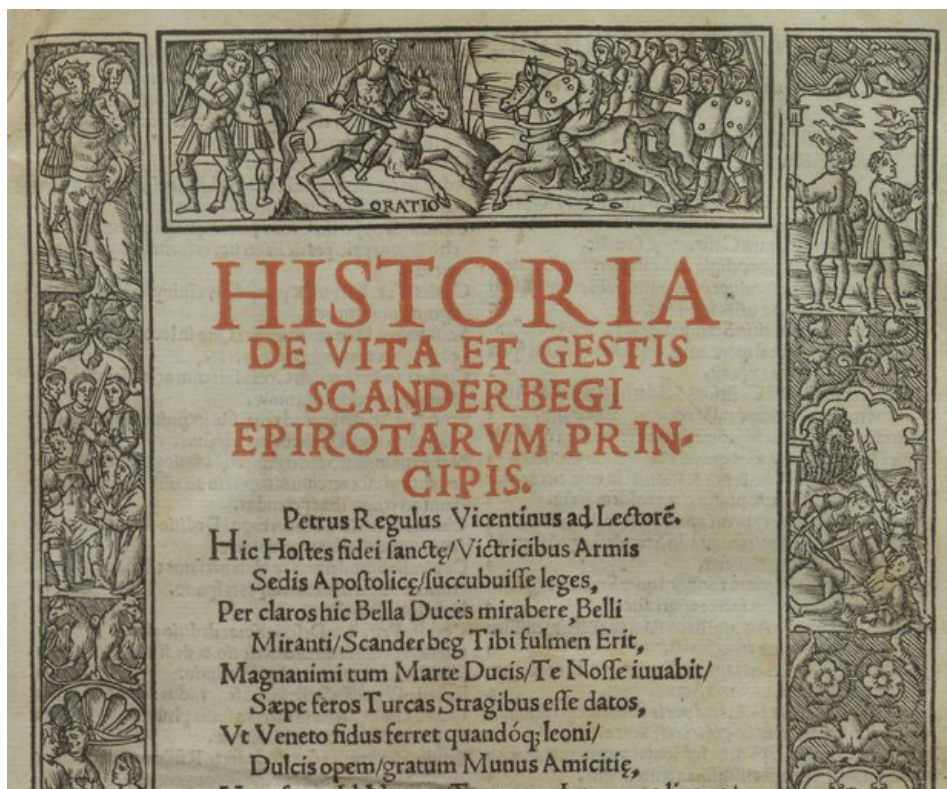 ORATIO
HISTORIA
DE VITA ET GESTIS
SCANDERBEGI
EPIROTARVM PRIN-
CIPIS.
Petrus Regulus Vicentinus ad Lectorẽ.
Hic Hostes fidei sanctę/Victricibus Armis
Sedis Apostolicę/succubuisse leges,
Per claros hic Bella Duces mirabere, Belli
Miranti/Scanderbeg Tibi fulmen Erit,
Magnanimi tum Marte Ducis/Te Nosse iuuabit/
Sæpe feros Turcas Stragibus esse datos,
Vt Veneto fidus ferret quandóq; leoni/
Dulcis opem/gratum Munus Amicitię,